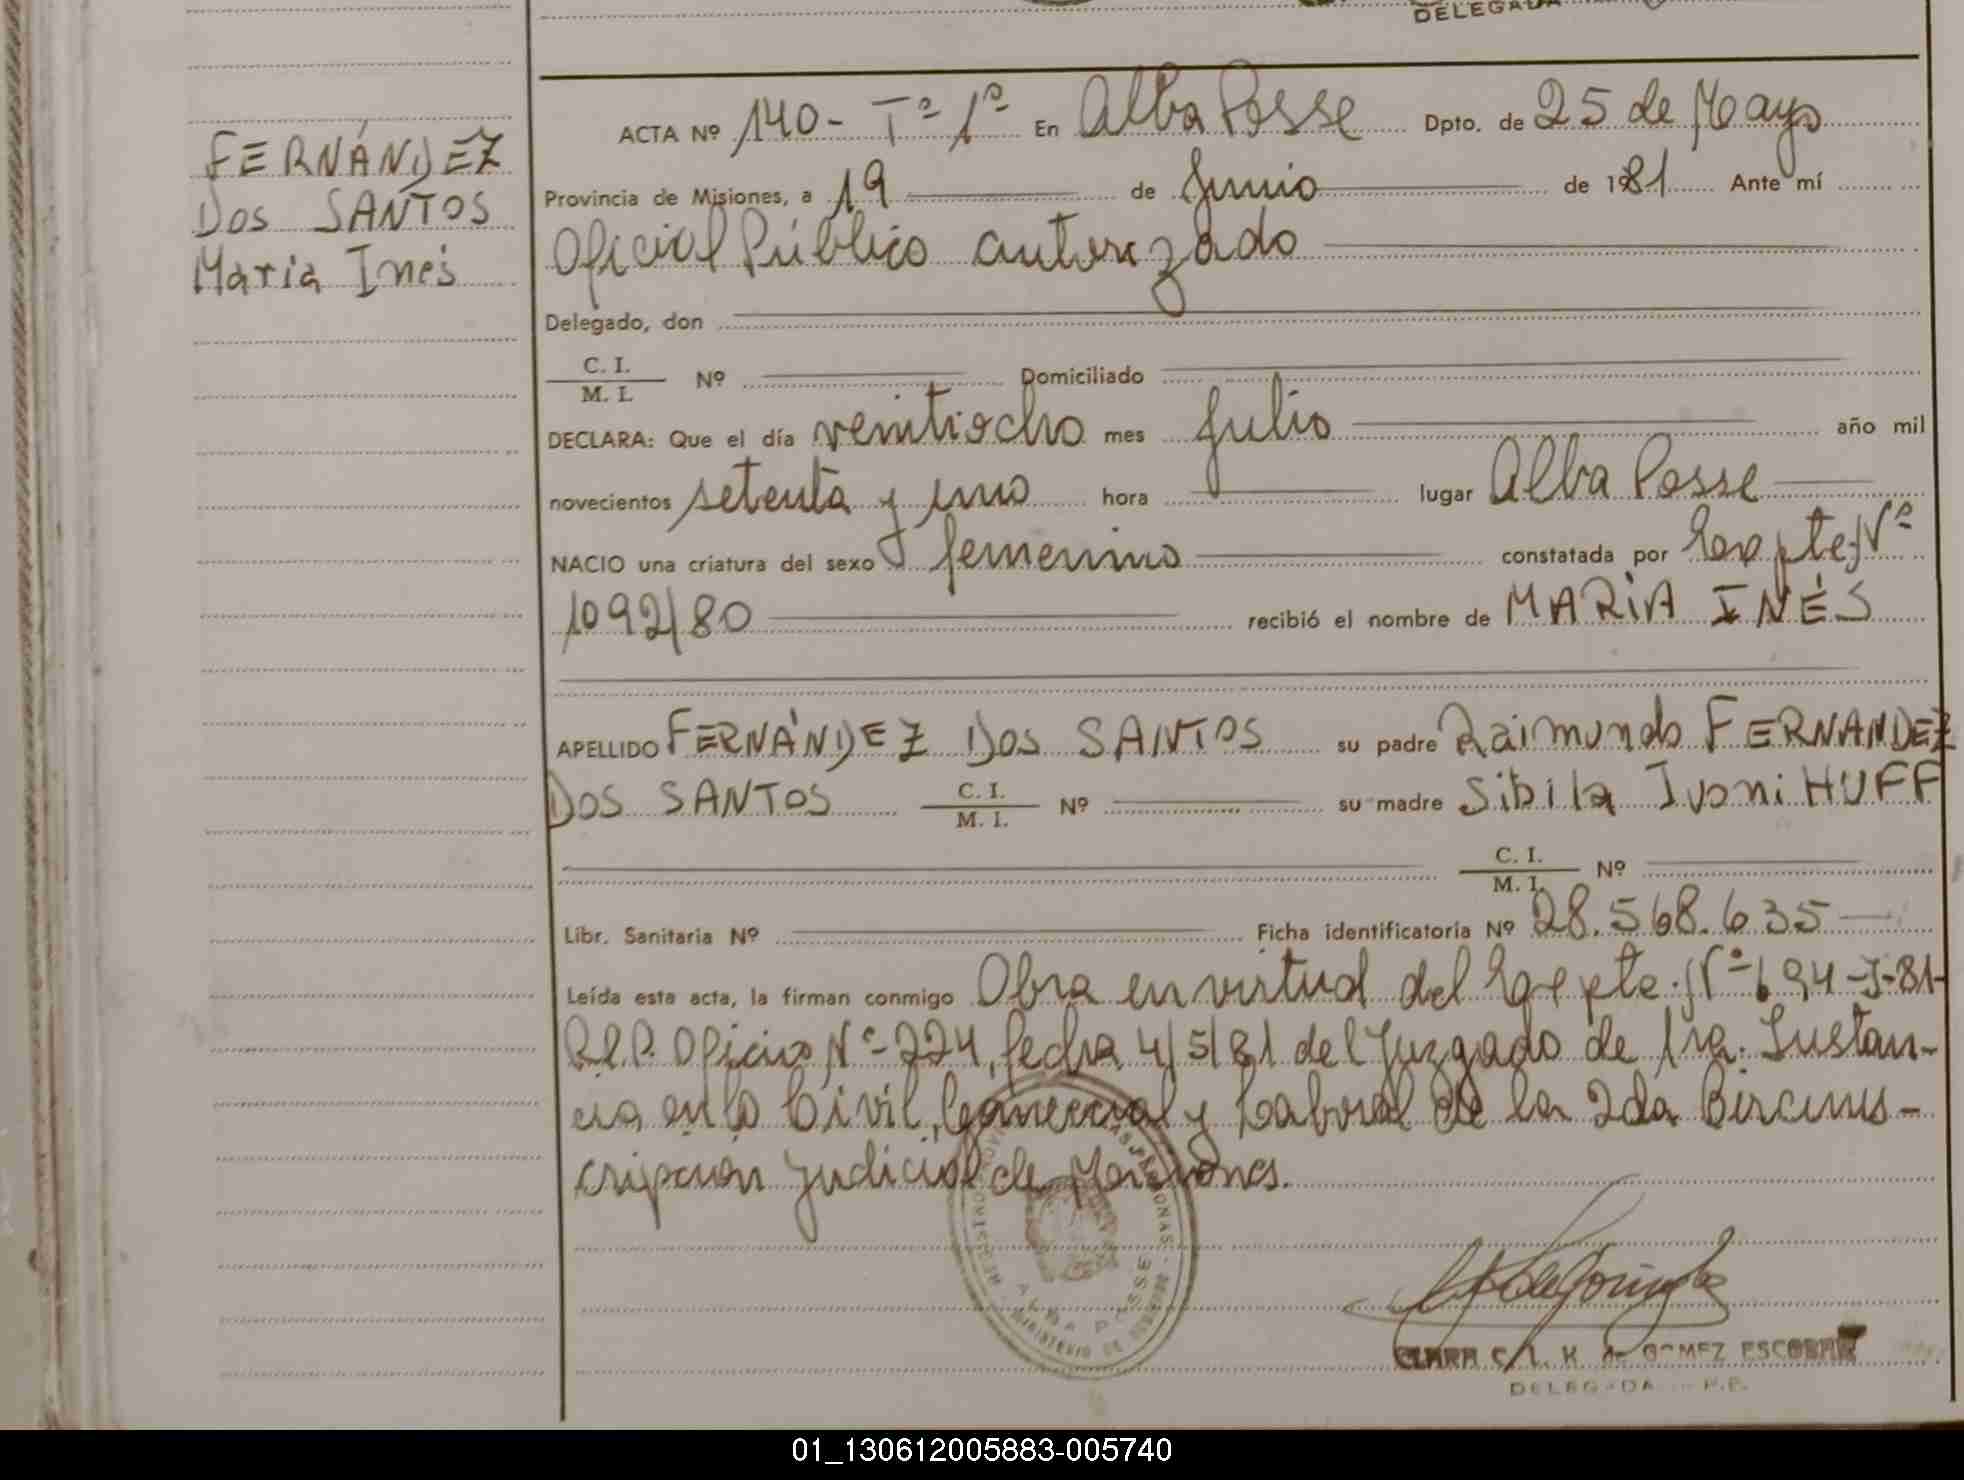 DELEGADA
FERNÁNDEZ
Dos SANTOS
María Inés
ACTA Nº 140 - Tº 1º En Alba Posse Dpto. de 25 de Mayo
Provincia de Misiones, a 19 de Junio de 1981 Ante mí
Oficial Público autorizado
Delegado, don
C. I.
M. I. Nº Domiciliado
DECLARA: Que el día veintiocho mes Julio año mil
novecientos setenta y uno hora lugar Alba Posse
NACIO una criatura del sexo femenino constatada por Expte. Nº
1092/80 recibió el nombre de MARÍA INÉS
APELLIDO FERNÁNDEZ Dos SANTOS su padre Raimundo FERNANDEZ
DOS SANTOS C. I. M. I. Nº su madre Sibila Ivoni HUFF
C. I. M. I. Nº
Libr. Sanitaria Nº Ficha identificatoria Nº 28.568.635
Leída esta acta, la firman conmigo Obra en virtud del Expte. Nº 694-J-81-
R.P.P. Oficio Nº 224, fecha 4/5/81 del Juzgado de 1ra. Instan-
cia en lo Civil, Comercial y Laboral de la 2da Circuns-
cripción Judicial de Misiones.
ALBA POSSE
MINISTERIO DE GOBIERNO
CLARA C. L. K. de GOMEZ ESCOBAR
DELEGADA R.P.
01_130612005883-005740